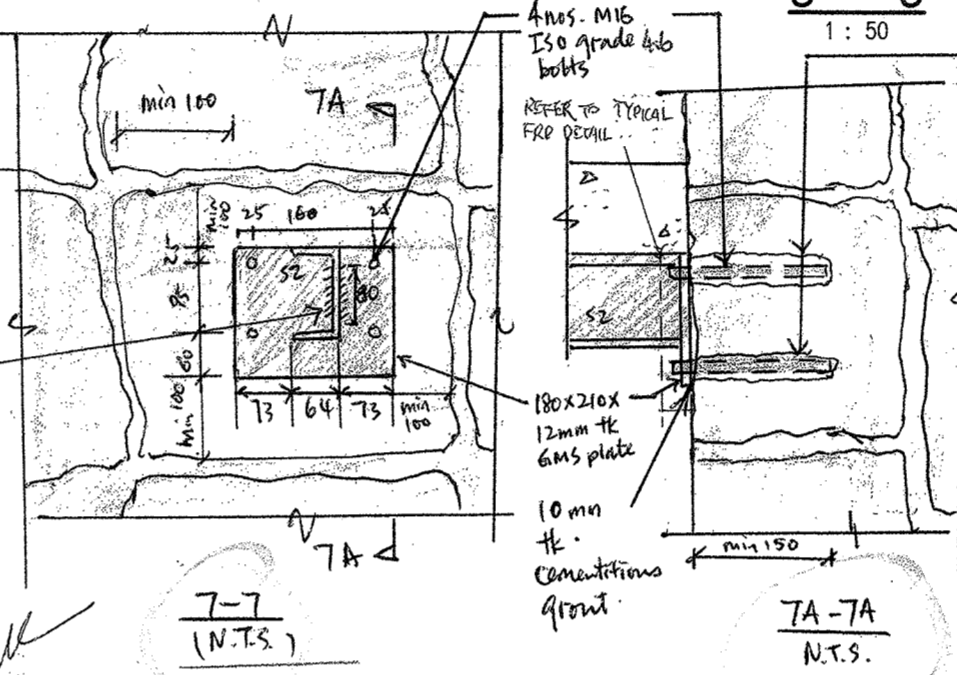 4 nos. M16
ISO grade 4.6
bolts
1 : 50
min 100
7A
REFER TO TYPICAL
FRP DETAIL
min
100
25
160
25
25
95
60
min 100
S2
80
73
64
73
min
100
S2
180x210x
12mm tk
GMS plate
10 mm
tk.
cementitious
grout.
min 150
7A
7-7
(N.T.S.)
7A-7A
N.T.S.